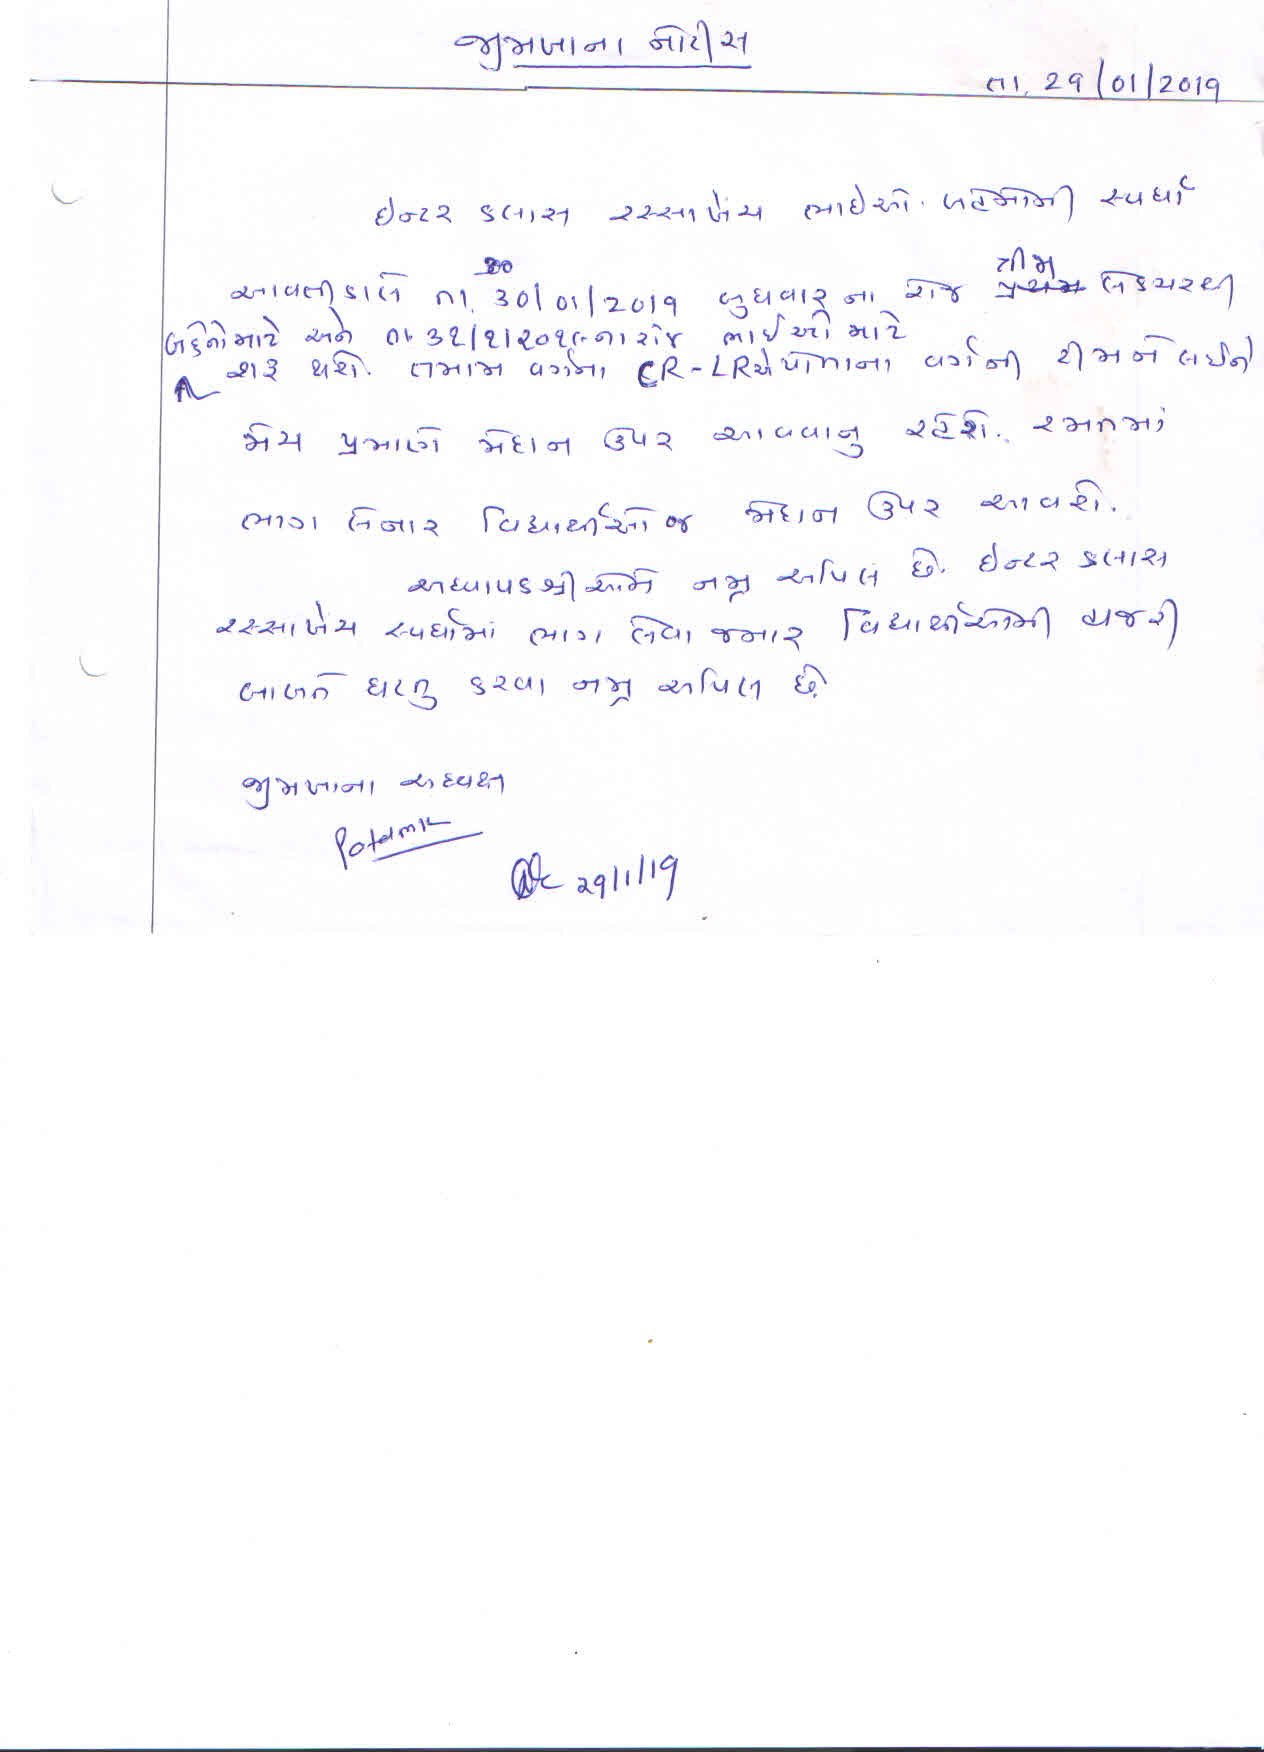 જીમખાના નોટીસ
તા. 29/01/2019
ઇન્ટર કલાસ રસ્સાખેંચ ભાઇઓ. બહેનોની સ્પર્ધા
30 ત્રીજા
આવતીકાલે તા. 30/01/2019 બુધવાર ના રોજ પ્રથમ લેકચરથી
બહેનો માટે અને તા. ૩૧/૧/૨૦૧૯ના રોજ ભાઈઓ માટે
શરૂ થશે. તમામ વર્ગના CR-LRએ પોતાના વર્ગની ટીમને લઈને
મેચ પ્રમાણે મેદાન ઉપર આવવાનુ રહેશે. રમતમાં
ભાગ લેનાર વિદ્યાર્થીઓ જ મેદાન ઉપર આવશે.
અધ્યાપકશ્રીઓને નમ્ર અપિલ છે. ઇન્ટર કલાસ
રસ્સાખેંચ સ્પર્ધામાં ભાગ લેવા જનાર વિદ્યાર્થીઓની હાજરી
બાબતે ઘટતુ કરવા નમ્ર અપિલ છે.
જીમખાના અધ્યક્ષ
29/1/19